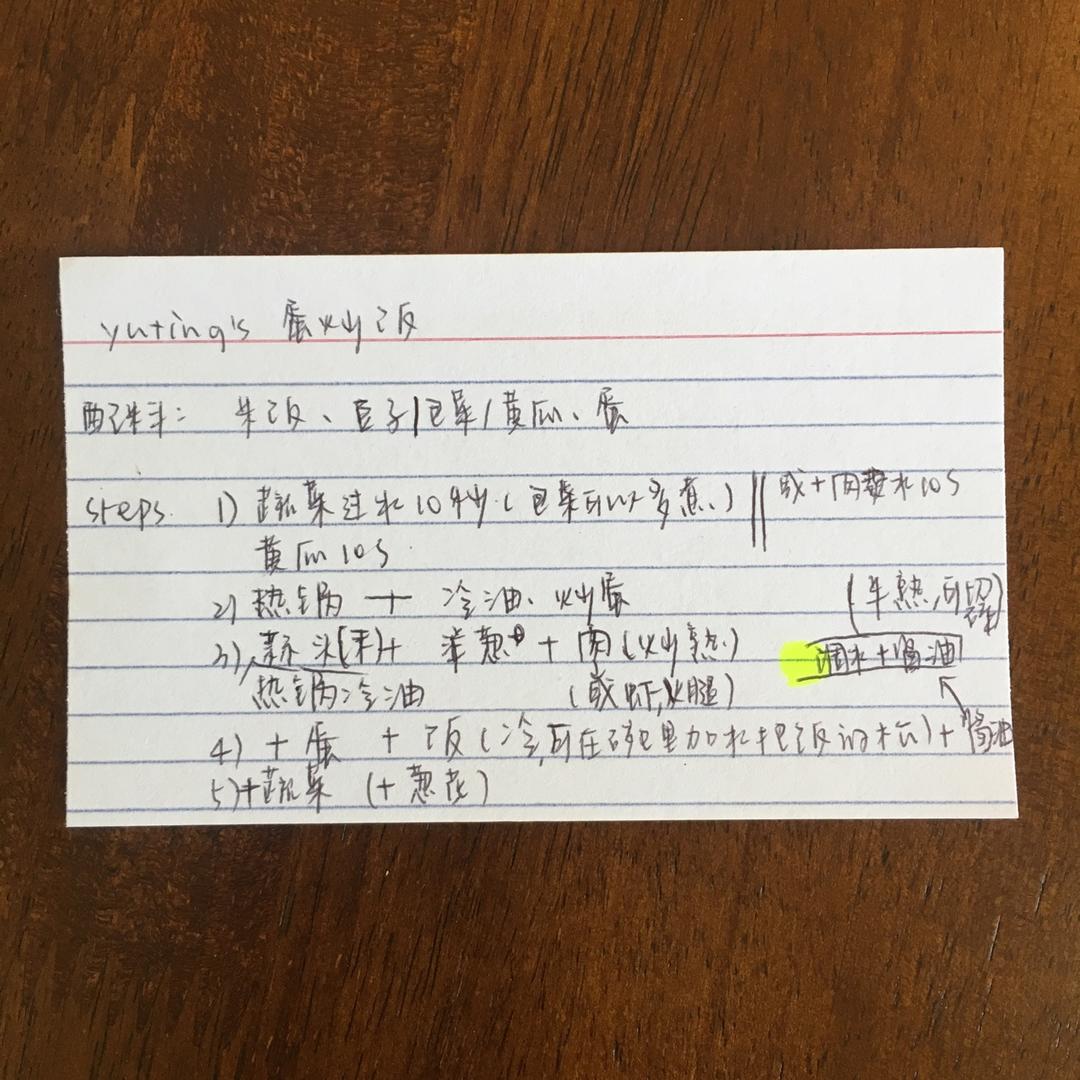 yuting's 蛋炒饭
配料: 米饭、豆子/包菜/黄瓜、蛋
steps. 1) 蔬菜过水10秒.(包菜可以多煮.) || 或+肉煮水10s
黄瓜10s.
2) 热锅 + 冷油、炒蛋
(半熟,可切碎)
3) 蒜头(末)+ 洋葱 + 肉(炒熟)
调水+酱油
热锅冷油 (或虾,火腿)
4) + 蛋 + 饭(冷,可在碗里加水把饭 )+酱油
5)+蔬菜 (+葱花)